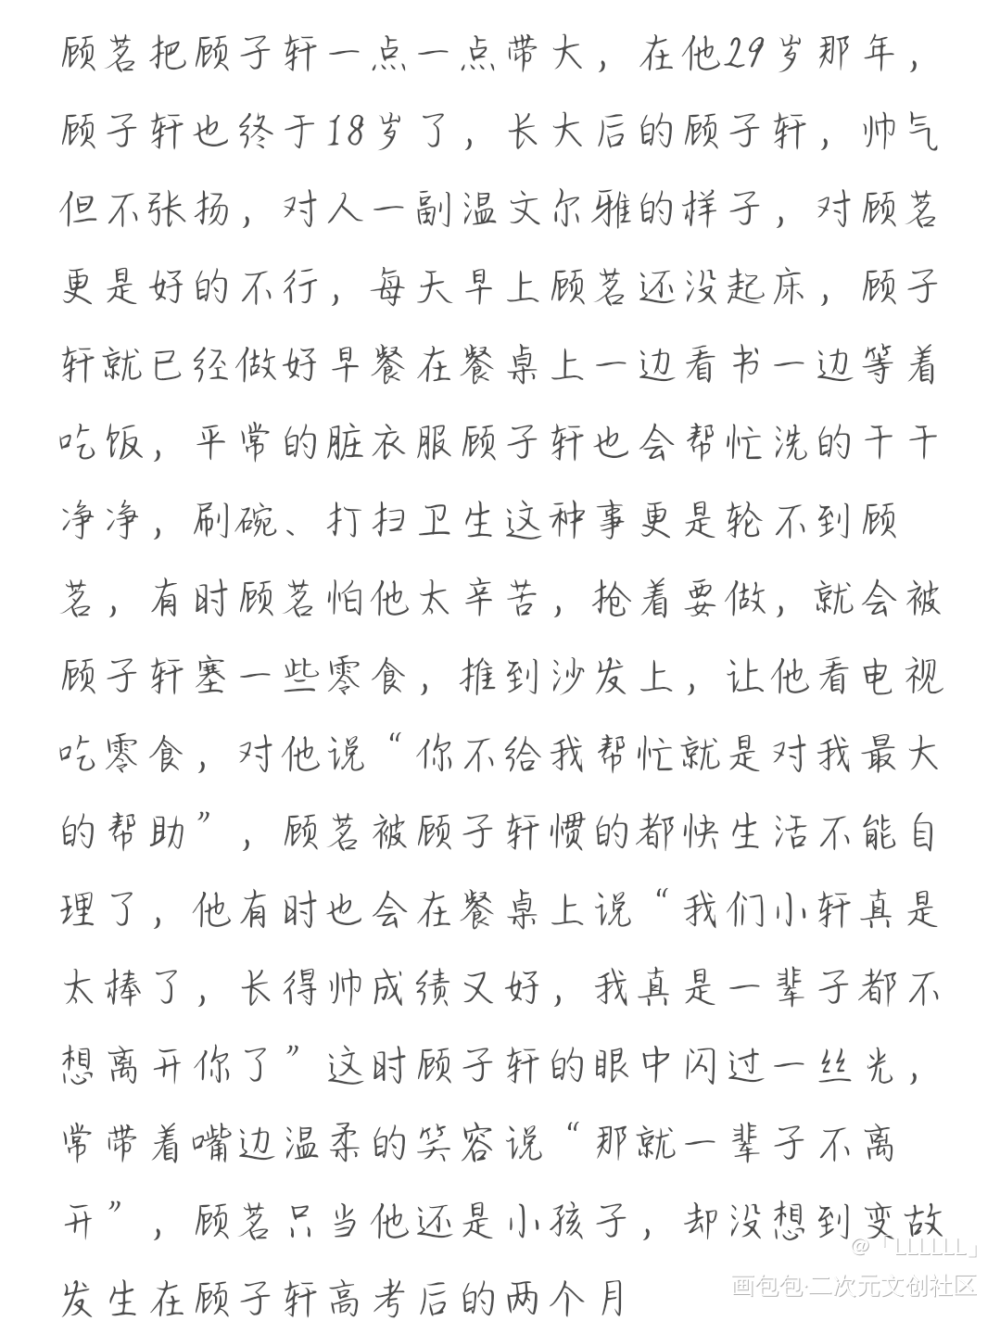 顾茗把顾子轩一点一点带大，在他29岁那年，
顾子轩也终于18岁了，长大后的顾子轩，帅气
但不张扬，对人一副温文尔雅的样子，对顾茗
更是好的不行，每天早上顾茗还没起床，顾子
轩就已经做好早餐在餐桌上一边看书一边等着
吃饭，平常的脏衣服顾子轩也会帮忙洗的干干
净净，刷碗、打扫卫生这种事更是轮不到顾
茗，有时顾茗怕他太辛苦，抢着要做，就会被
顾子轩塞一些零食，推到沙发上，让他看电视
吃零食，对他说“你不给我帮忙就是对我最大
的帮助”，顾茗被顾子轩惯的都快生活不能自
理了，他有时也会在餐桌上说“我们小轩真是
太棒了，长得帅成绩又好，我真是一辈子都不
想离开你了”这时顾子轩的眼中闪过一丝光，
常带着嘴边温柔的笑容说“那就一辈子不离
开”，顾茗只当他还是小孩子，却没想到变故
发生在顾子轩高考后的两个月
@「LLLLLL」
画包包·二次元文创社区